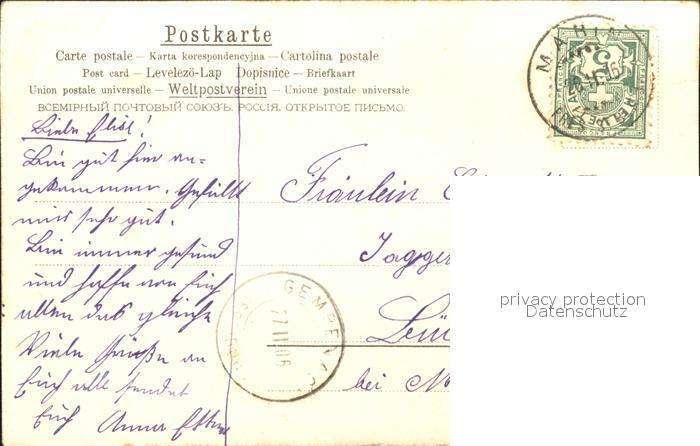 Postkarte
Carte postale – Karta korespondencyjna – Cartolina postale
Post card – Levelező-Lap Dopisnice – Briefkaart
Union postale universelle – Weltpostverein – Unione postale universale
ВСЕМІРНЫЙ ПОЧТОВЫЙ СОЮЗЪ. РОССІЯ. ОТКРЫТОЕ ПИСЬМО.
Liebe Elise!
Bin gut hier an-
gekommen. Gefällt
mir sehr gut.
Bin immer gesund
und hoffe von Euch
allen das gleiche
Viele Grüße an
Euch alle sendet
Euch Anna
Fräulein
Jagger
bei
5
privacy protection
Datenschutz